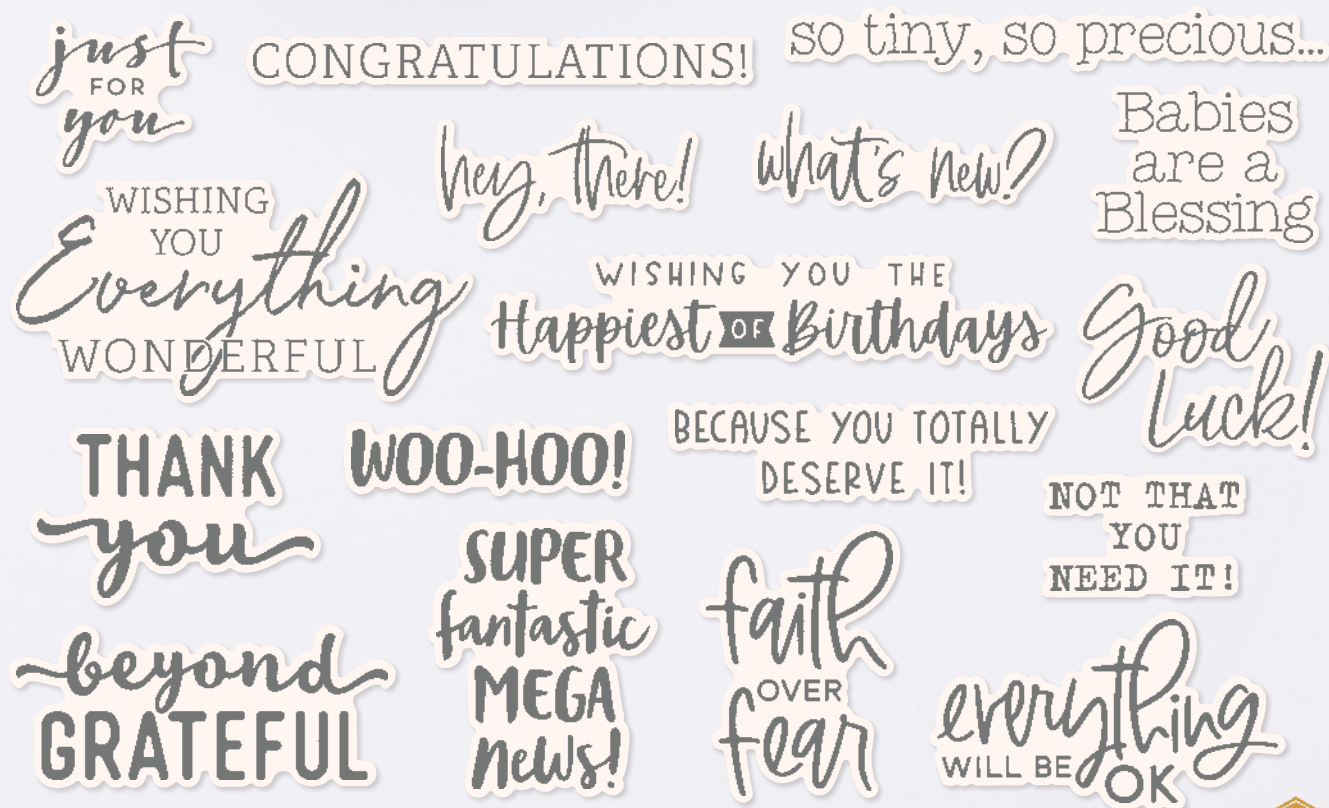 just
FOR
you
CONGRATULATIONS!
so tiny, so precious...
hey, there!
what's new?
Babies
are a
Blessing
WISHING
YOU
Everything
WONDERFUL
WISHING YOU THE
Happiest OF Birthdays
Good
Luck!
THANK
you
WOO-HOO!
BECAUSE YOU TOTALLY
DESERVE IT!
NOT THAT
YOU
NEED IT!
SUPER
fantastic
MEGA
news!
faith
OVER
fear
beyond
GRATEFUL
everything
WILL BE OK